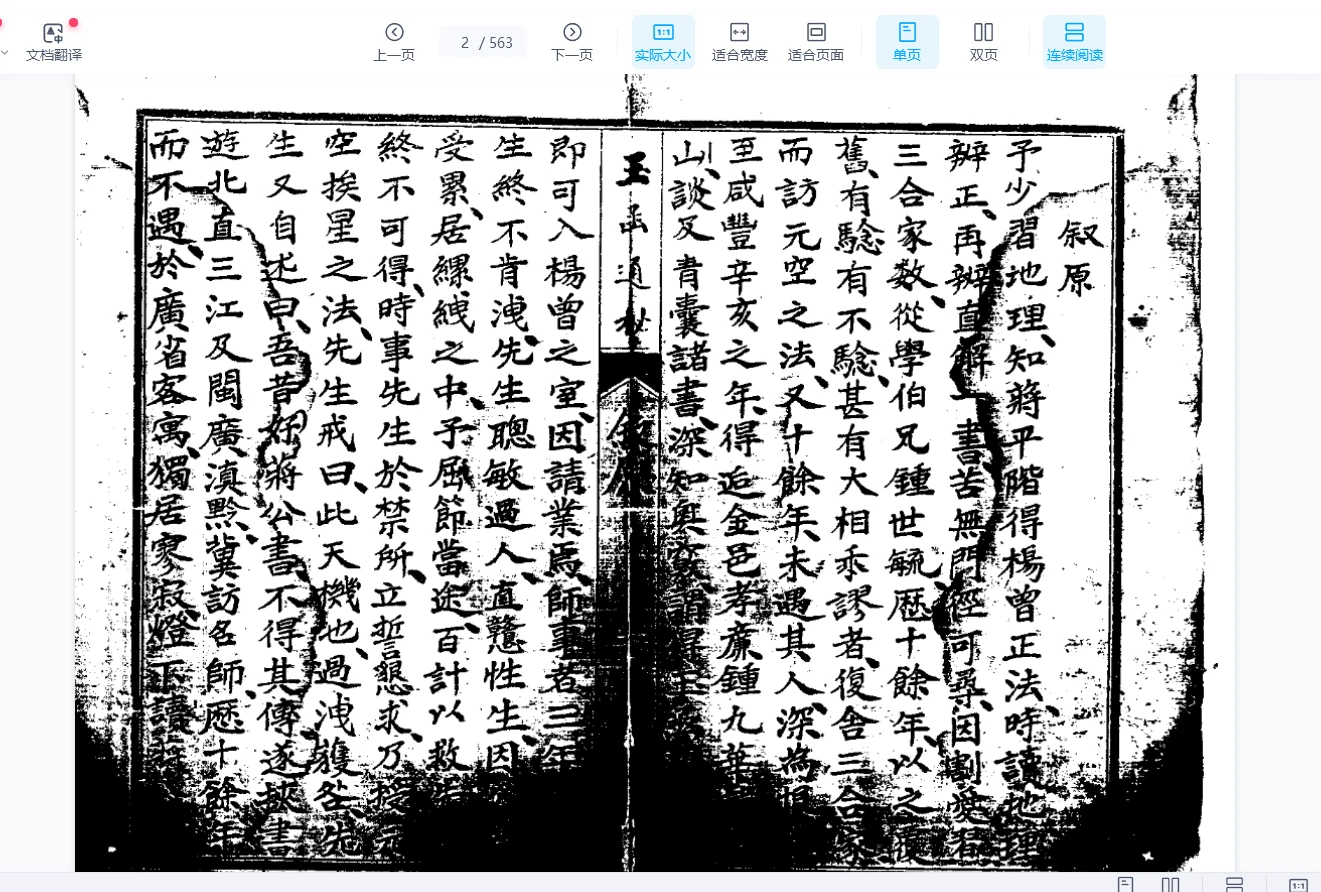 文档翻译
上一页
2 / 563
下一页
1:1
实际大小
适合宽度
适合页面
单页
双页
连续阅读
叙原
予少習地理、知蔣平階得楊曾正法、時讀地理
辨正、再辨直解一書苦無門徑可尋、因割愛看
三合家数、從學伯兄鍾世毓歷十餘年、以之覆
舊、有騐有不騐、甚有大相乖謬者、復舍三合家
而訪元空之法、又十餘年、未遇其人、深為恨
至咸豐辛亥之年、得逅金邑孝廉鍾九華
山、談及青囊諸書、深知奥窔、謂得
玉函通秘
叙原
即可入楊曾之室、因請業焉、師事者三年
生終不肯洩、先生聰敏過人、直戇性生、因
受累、居縲絏之中、予屈節當途、百計以救
終不可得、時事先生於禁所、立誓懇求、乃授
空挨星之法、先生戒曰、此天機也、過洩獲咎、先
生又自述曰、吾昔好蔣公書、不得其傳、遂挾書
遊北直三江及閩廣滇黔冀訪名師、歷十餘年
而不遇、於廣省客寓、獨居寥寂、燈下讀
1:1